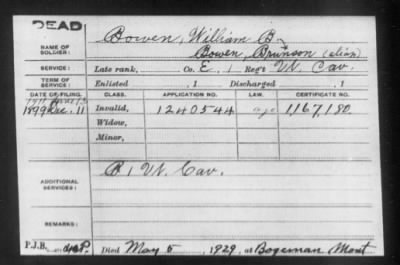 DEAD
NAME OF SOLDIER: Bowen, William B.
Bowen, Brunson (alias)
SERVICE: Late rank, Co. E, 1 Reg't Vt. Cav.
TERM OF SERVICE: Enlisted , 1 Discharged , 1
DATE OF FILING. CLASS. APPLICATION NO. LAW. CERTIFICATE NO.
1899 Dec. 11 Invalid, 1240544 1,167,180
Widow,
Minor,
ADDITIONAL SERVICES: B 1 Vt. Cav.
REMARKS:
P.J.B. Died May 5, 1929, at Bozeman Mont